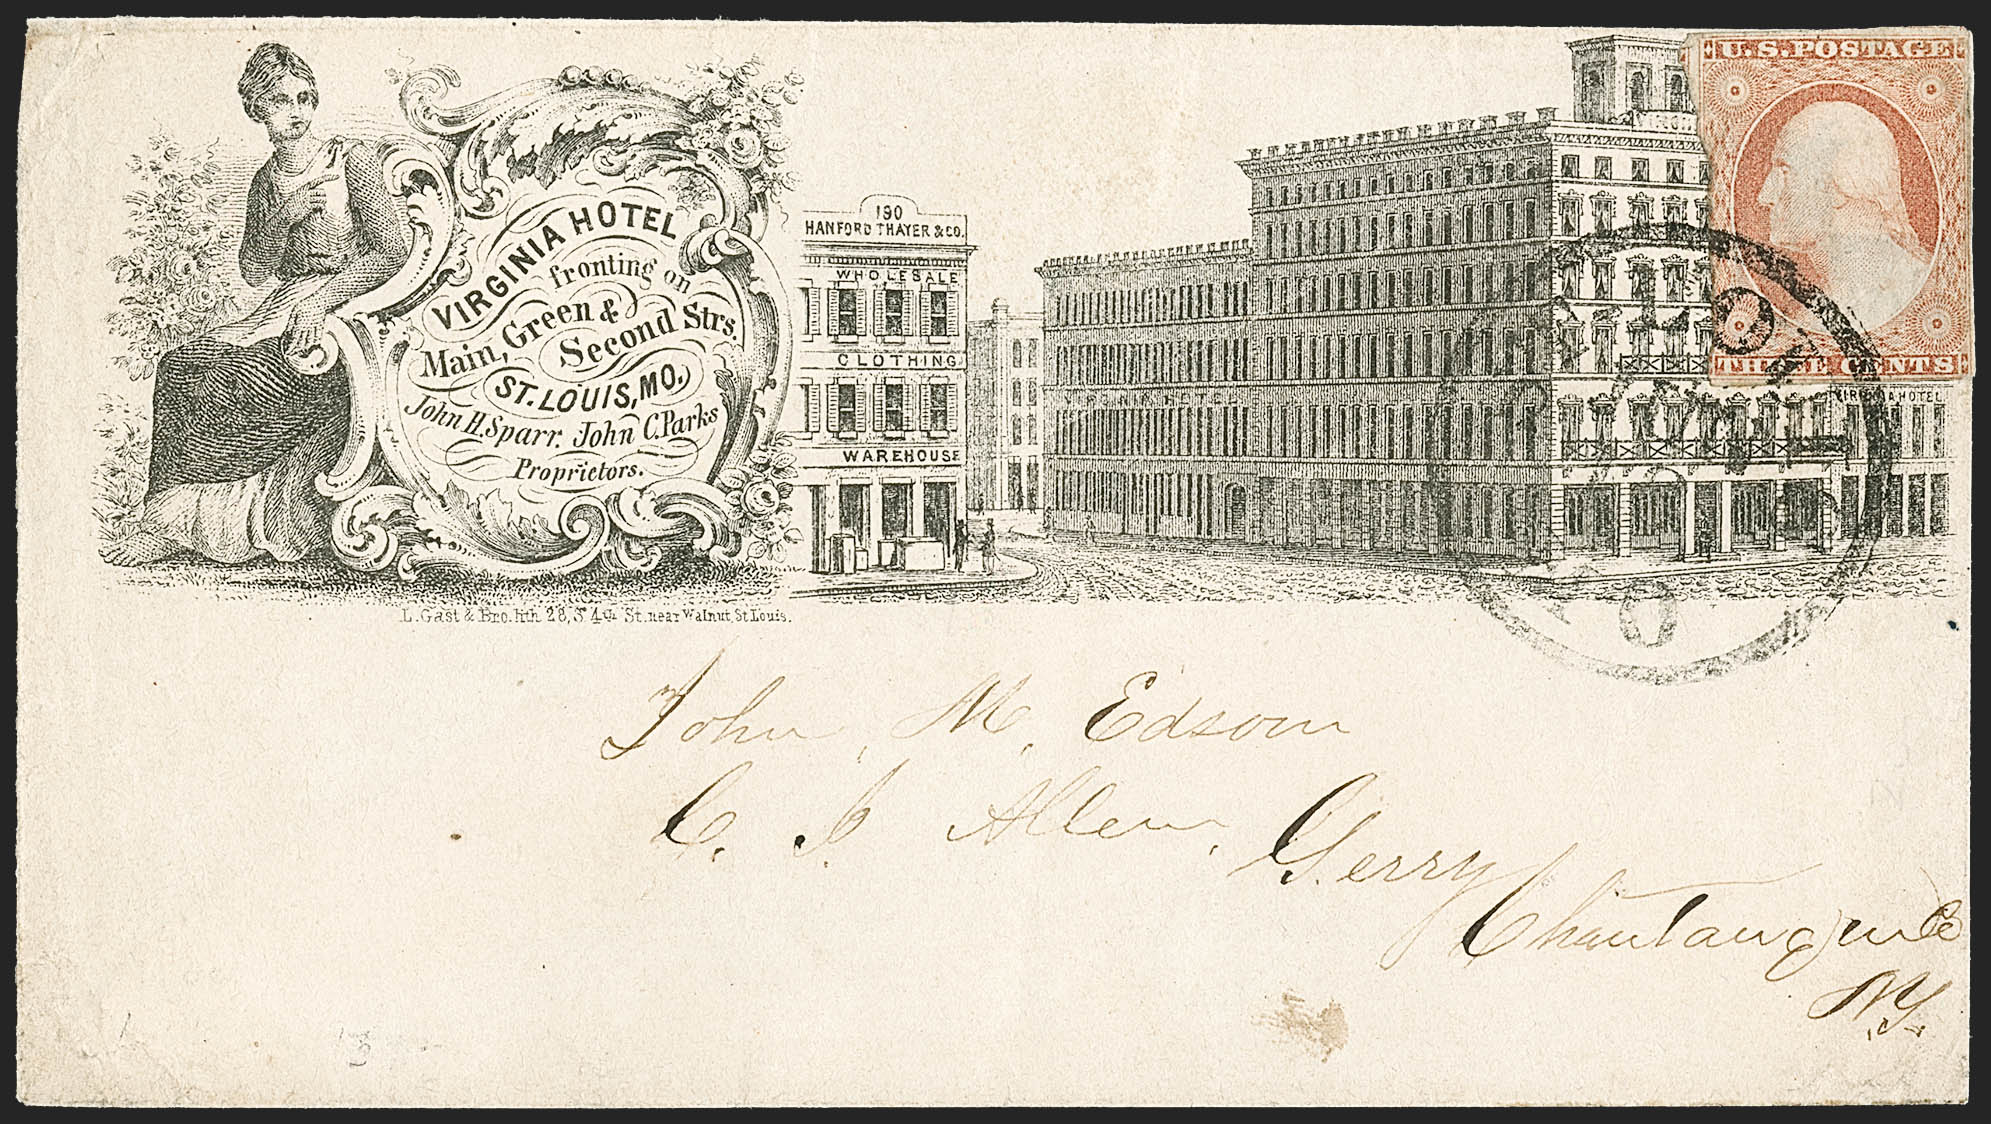 VIRGINIA HOTEL
fronting on
Main, Green &
Second Strs.
ST. LOUIS, MO.
John H. Sparr. John C. Parks
Proprietors.
L. Gast & Bro. lith 28, S 4th St. near Walnut, St Louis.
190
HANFORD THAYER & CO.
WHOLESALE
CLOTHING
WAREHOUSE
VIRGINIA HOTEL
VIRGINIA HOTEL
U.S. POSTAGE
THREE CENTS
John, M. Edson
C. I. Allen, Gerry
Chautauque Co
N.Y.